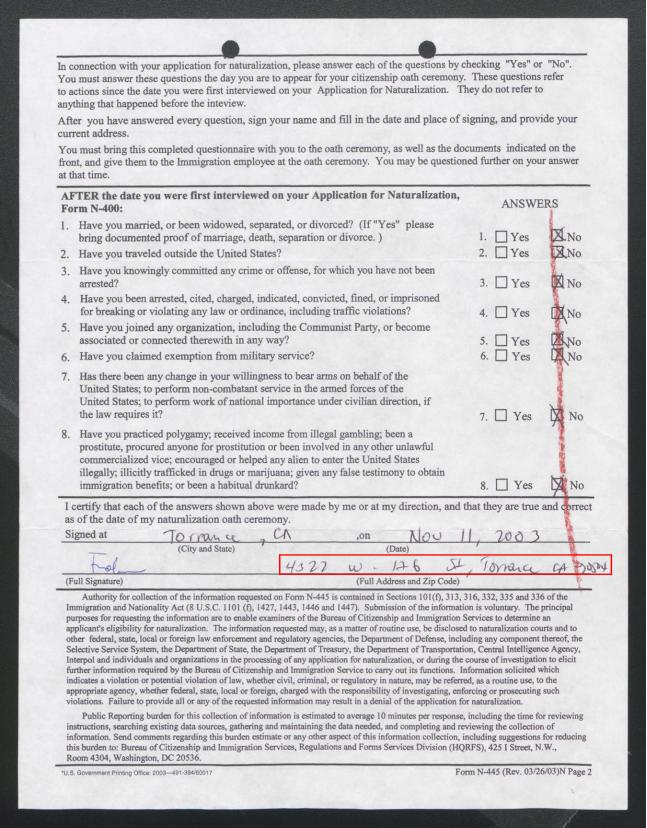 In connection with your application for naturalization, please answer each of the questions by checking "Yes" or "No".
You must answer these questions the day you are to appear for your citizenship oath ceremony. These questions refer
to actions since the date you were first interviewed on your Application for Naturalization. They do not refer to
anything that happened before the inteview.
After you have answered every question, sign your name and fill in the date and place of signing, and provide your
current address.
You must bring this completed questionnaire with you to the oath ceremony, as well as the documents indicated on the
front, and give them to the Immigration employee at the oath ceremony. You may be questioned further on your answer
at that time.
AFTER the date you were first interviewed on your Application for Naturalization,
Form N-400:
ANSWERS
1. Have you married, or been widowed, separated, or divorced? (If "Yes" please
bring documented proof of marriage, death, separation or divorce. )
1. Yes No
2. Have you traveled outside the United States?
2. Yes No
3. Have you knowingly committed any crime or offense, for which you have not been
arrested?
3. Yes No
4. Have you been arrested, cited, charged, indicated, convicted, fined, or imprisoned
for breaking or violating any law or ordinance, including traffic violations?
4. Yes No
5. Have you joined any organization, including the Communist Party, or become
associated or connected therewith in any way?
5. Yes No
6. Have you claimed exemption from military service?
6. Yes No
7. Has there been any change in your willingness to bear arms on behalf of the
United States; to perform non-combatant service in the armed forces of the
United States; to perform work of national importance under civilian direction, if
the law requires it?
7. Yes No
8. Have you practiced polygamy; received income from illegal gambling; been a
prostitute, procured anyone for prostitution or been involved in any other unlawful
commercialized vice; encouraged or helped any alien to enter the United States
illegally; illicitly trafficked in drugs or marijuana; given any false testimony to obtain
immigration benefits; or been a habitual drunkard?
8. Yes No
I certify that each of the answers shown above were made by me or at my direction, and that they are true and correct
as of the date of my naturalization oath ceremony.
Signed at Torrance, CA ,on Nov 11, 2003
(City and State) (Date)
4327 W. 176 St, Torrance CA
(Full Signature) (Full Address and Zip Code)
Authority for collection of the information requested on Form N-445 is contained in Sections 101(f), 313, 316, 332, 335 and 336 of the
Immigration and Nationality Act (8 U.S.C. 1101 (f), 1427, 1443, 1446 and 1447). Submission of the information is voluntary. The principal
purposes for requesting the information are to enable examiners of the Bureau of Citizenship and Immigration Services to determine an
applicant's eligibility for naturalization. The information requested may, as a matter of routine use, be disclosed to naturalization courts and to
other federal, state, local or foreign law enforcement and regulatory agencies, the Department of Defense, including any component thereof, the
Selective Service System, the Department of State, the Department of Treasury, the Department of Transportation, Central Intelligence Agency,
Interpol and individuals and organizations in the processing of any application for naturalization, or during the course of investigation to elicit
further information required by the Bureau of Citizenship and Immigration Service to carry out its functions. Information solicited which
indicates a violation or potential violation of law, whether civil, criminal, or regulatory in nature, may be referred, as a routine use, to the
appropriate agency, whether federal, state, local or foreign, charged with the responsibility of investigating, enforcing or prosecuting such
violations. Failure to provide all or any of the requested information may result in a denial of the application for naturalization.
Public Reporting burden for this collection of information is estimated to average 10 minutes per response, including the time for reviewing
instructions, searching existing data sources, gathering and maintaining the data needed, and completing and reviewing the collection of
information. Send comments regarding this burden estimate or any other aspect of this information collection, including suggestions for reducing
this burden to: Bureau of Citizenship and Immigration Services, Regulations and Forms Services Division (HQRFS), 425 I Street, N.W.,
Room 4304, Washington, DC 20536.
*U.S. Government Printing Office: 2003—491-394/60017 Form N-445 (Rev. 03/26/03)N Page 2